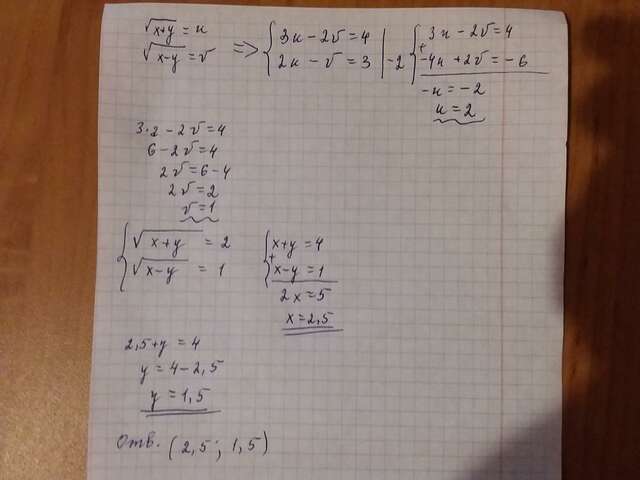 √x+y = u
√x-y = v => { 3u - 2v = 4
2u - v = 3 | -2 { 3u - 2v = 4
+ -4u + 2v = -6
-u = -2
u = 2
3·2 - 2v = 4
6 - 2v = 4
2v = 6 - 4
2v = 2
v = 1
{ √x+y = 2
√x-y = 1
{ x+y = 4
+ x-y = 1
2x = 5
x = 2,5
2,5+y = 4
y = 4 - 2,5
y = 1,5
Отв. (2,5; 1,5)